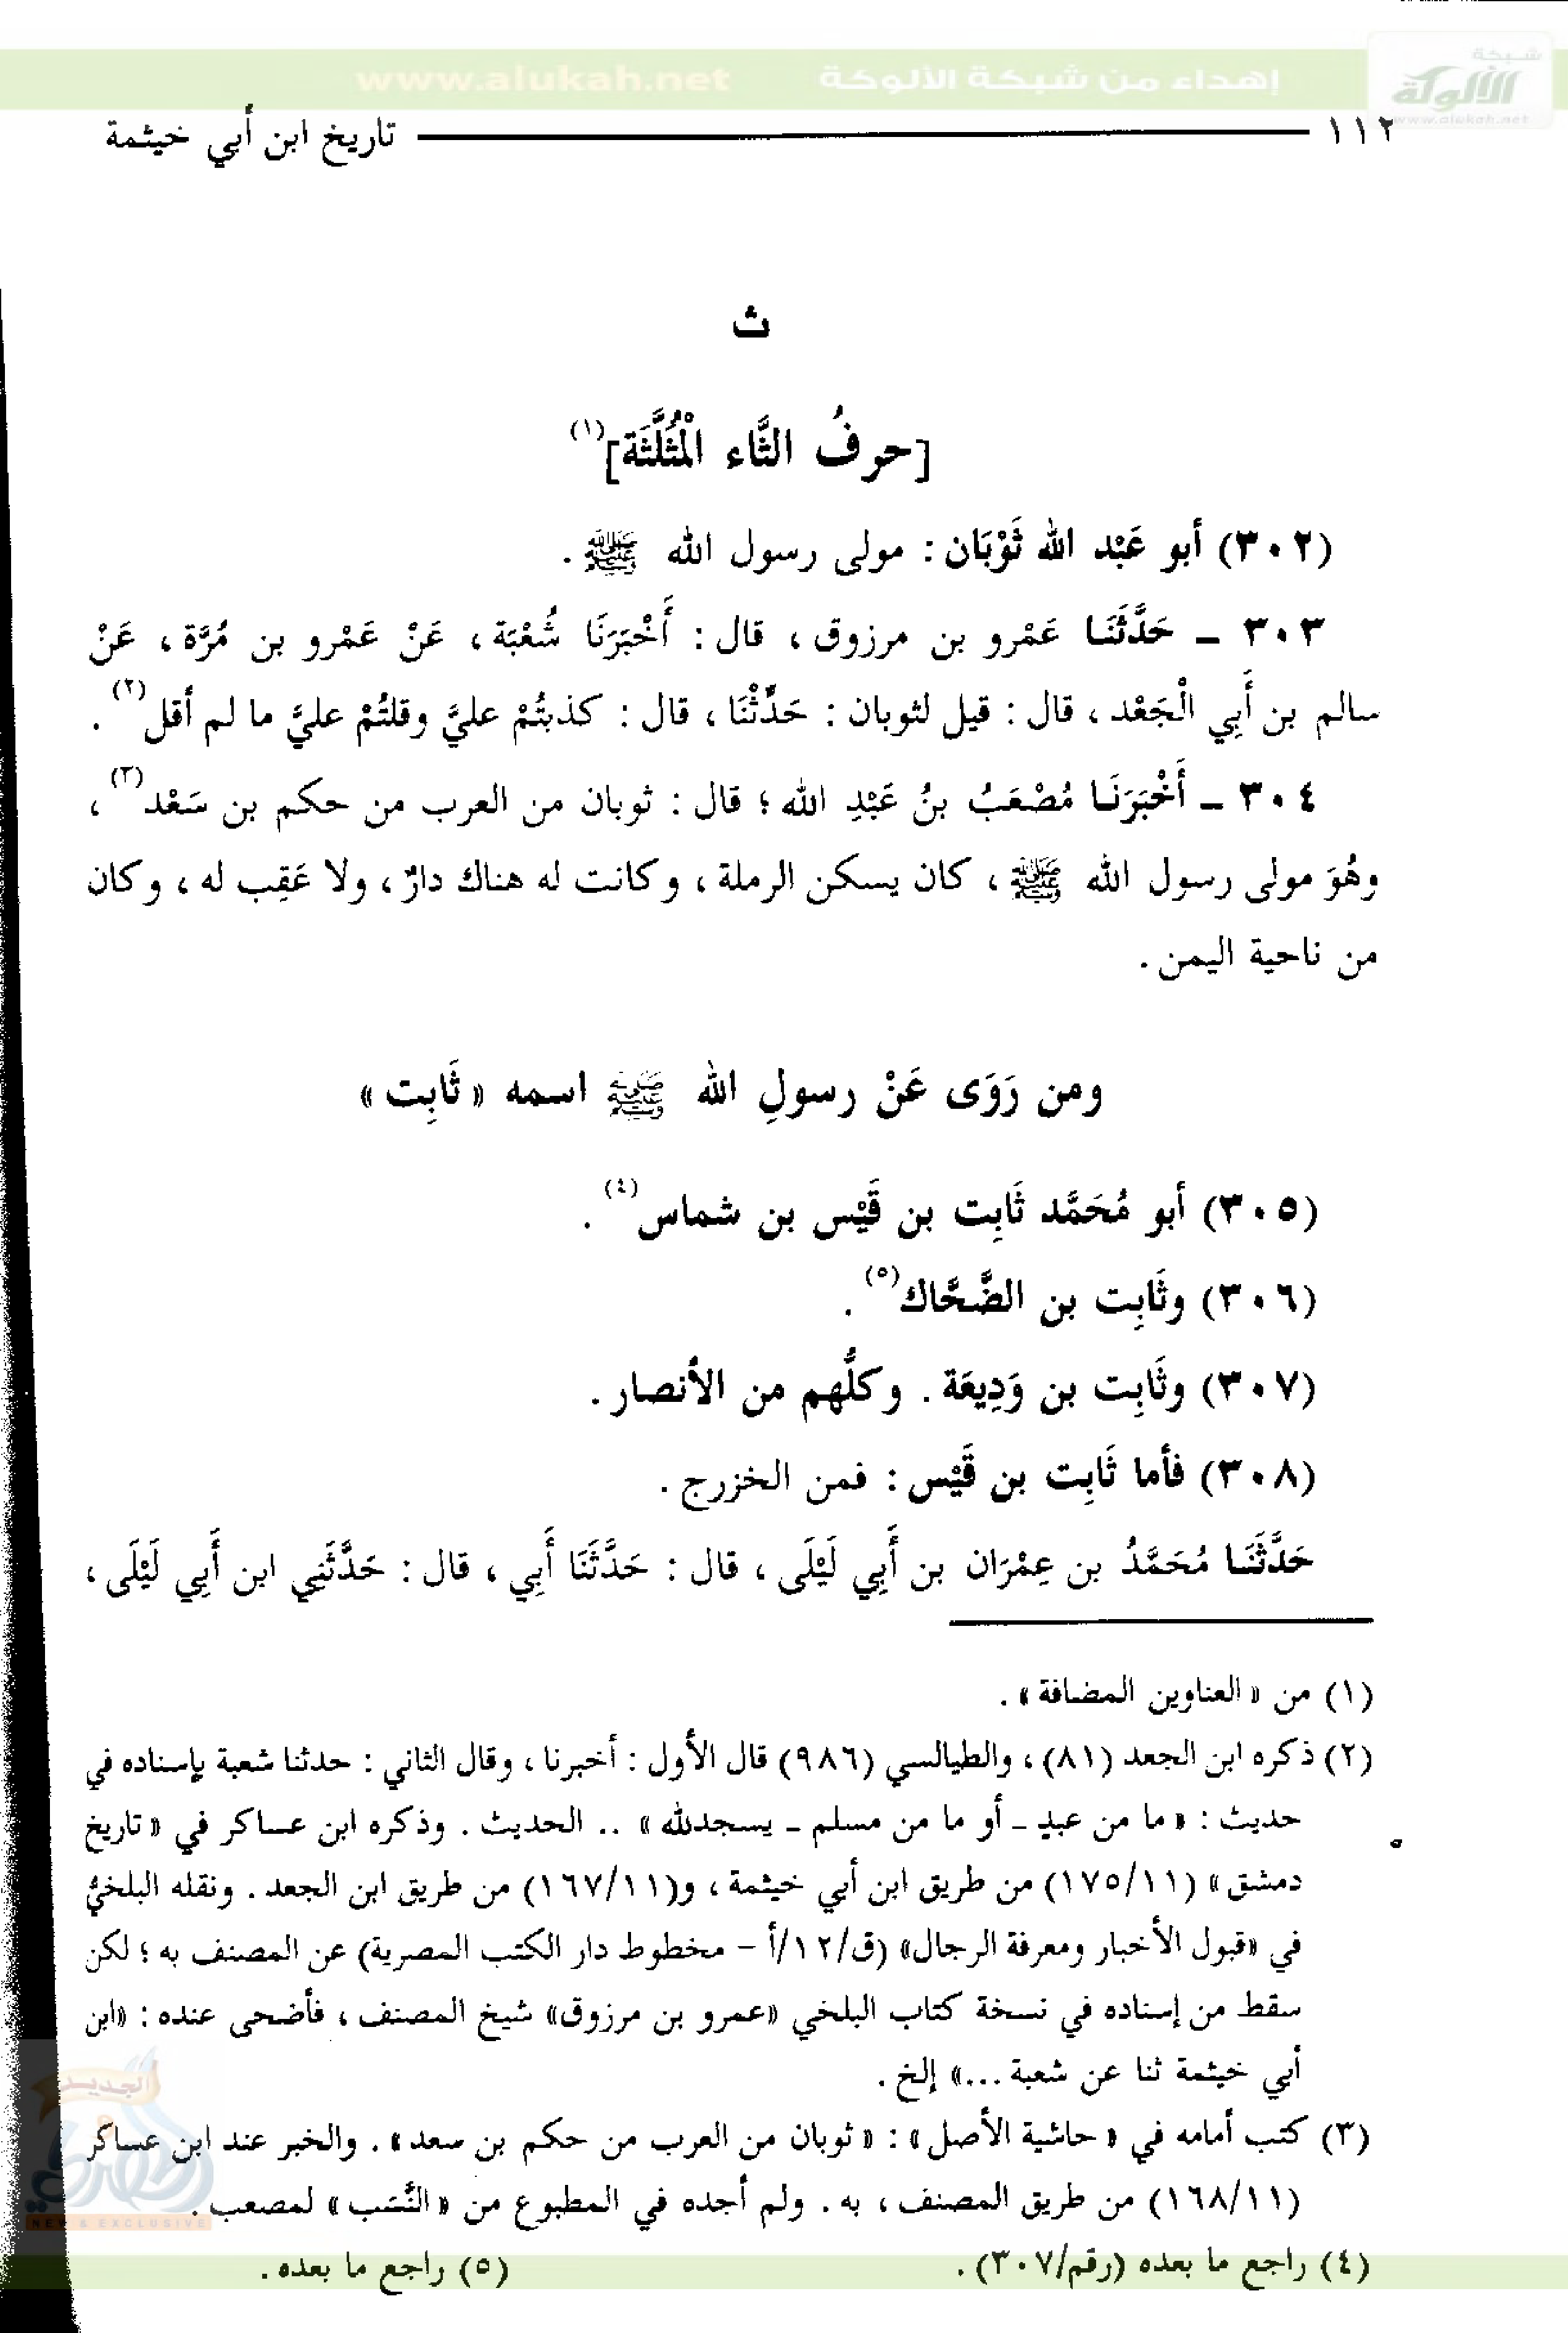 شبكة
الألوكة
www.alukah.net
إهداء من شبكة الألوكة www.alukah.net
١١٢ تاريخ ابن أبي خيثمة
ث
[حرفُ الثَّاء الْمُثَلَّثَة](١)
(٣٠٢) أبو عَبْد الله ثَوْبَان : مولى رسول الله ﷺ .
٣٠٣ ـ حَدَّثَنَا عَمْرو بن مرزوق ، قال : أَخْبَرَنَا شُعْبَة ، عَنْ عَمْرو بن مُرَّة ، عَنْ
سالم بن أَبِي الْجَعْد ، قال : قيل لثوبان : حَدِّثْنَا ، قال : كذبتُمْ عليَّ وقلتُمْ عليَّ ما لم أقل(٢) .
٣٠٤ ـ أَخْبَرَنَا مُصْعَبُ بنُ عَبْدِ الله ؛ قال : ثوبان من العرب من حكم بن سَعْد(٣) ،
وهُوَ مولى رسول الله ﷺ ، كان يسكن الرملة ، وكانت له هناك دارٌ ، ولا عَقِب له ، وكان
من ناحية اليمن .
ومن رَوَى عَنْ رسولِ الله ﷺ اسمه « ثَابِت »
(٣٠٥) أبو مُحَمَّد ثَابِت بن قَيْس بن شماس(٤) .
(٣٠٦) وثَابِت بن الضَّحَّاك(٥) .
(٣٠٧) وثَابِت بن وَدِيعَة . وكلُّهم من الأنصار .
(٣٠٨) فأما ثَابِت بن قَيْس : فمن الخزرج .
حَدَّثَنَا مُحَمَّدُ بن عِمْرَان بن أَبِي لَيْلَى ، قال : حَدَّثَنَا أَبِي ، قال : حَدَّثَنِي ابن أَبِي لَيْلَى ،
(١) من « العناوين المضافة » .
(٢) ذكره ابن الجعد (٨١) ، والطيالسي (٩٨٦) قال الأول : أخبرنا ، وقال الثاني : حدثنا شعبة بإسناده في
حديث : « ما من عبدٍ ـ أو ما من مسلم ـ يسجدلله » .. الحديث . وذكره ابن عساكر في « تاريخ
دمشق » (١٧٥/١١) من طريق ابن أبي خيثمة ، و(١٦٧/١١) من طريق ابن الجعد . ونقله البلخيُّ
في «قبول الأخبار ومعرفة الرجال» (ق/١٢/أ - مخطوط دار الكتب المصرية) عن المصنف به ؛ لكن
سقط من إسناده في نسخة كتاب البلخي «عمرو بن مرزوق» شيخ المصنف ، فأضحى عنده : «ابن
أبي خيثمة ثنا عن شعبة ...» إلخ .
(٣) كتب أمامه في « حاشية الأصل » : « ثوبان من العرب من حكم بن سعد » . والخبر عند ابن عساكر
(١٦٨/١١) من طريق المصنف ، به . ولم أجده في المطبوع من « النَّسَب » لمصعب .
(٤) راجع ما بعده (رقم/٣٠٧) . (٥) راجع ما بعده .
الجديد
NEW & EXCLUSIVE